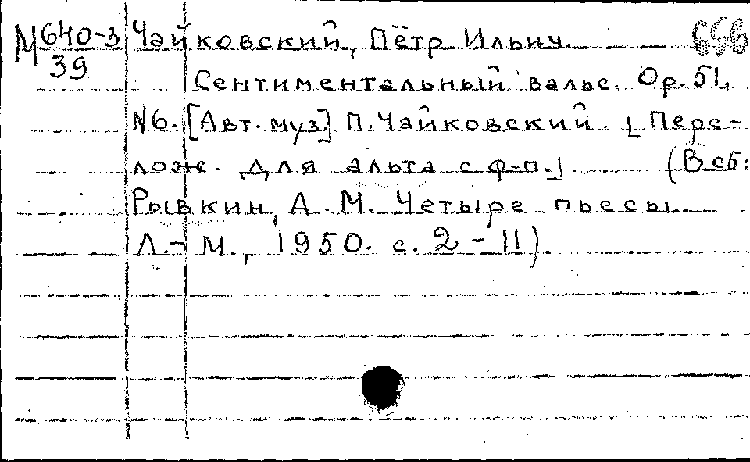 М 640-3 Чайковский, Пётр Ильич. 656
39
Сентиментальный вальс. Ор. 51,
№6. [Авт. муз.] П. Чайковский. [Пере-
лож. для альта с ф-п.] (В сб:
Рывкин, А. М. Четыре пьесы.
Л.-М., 1950. с. 2-11).